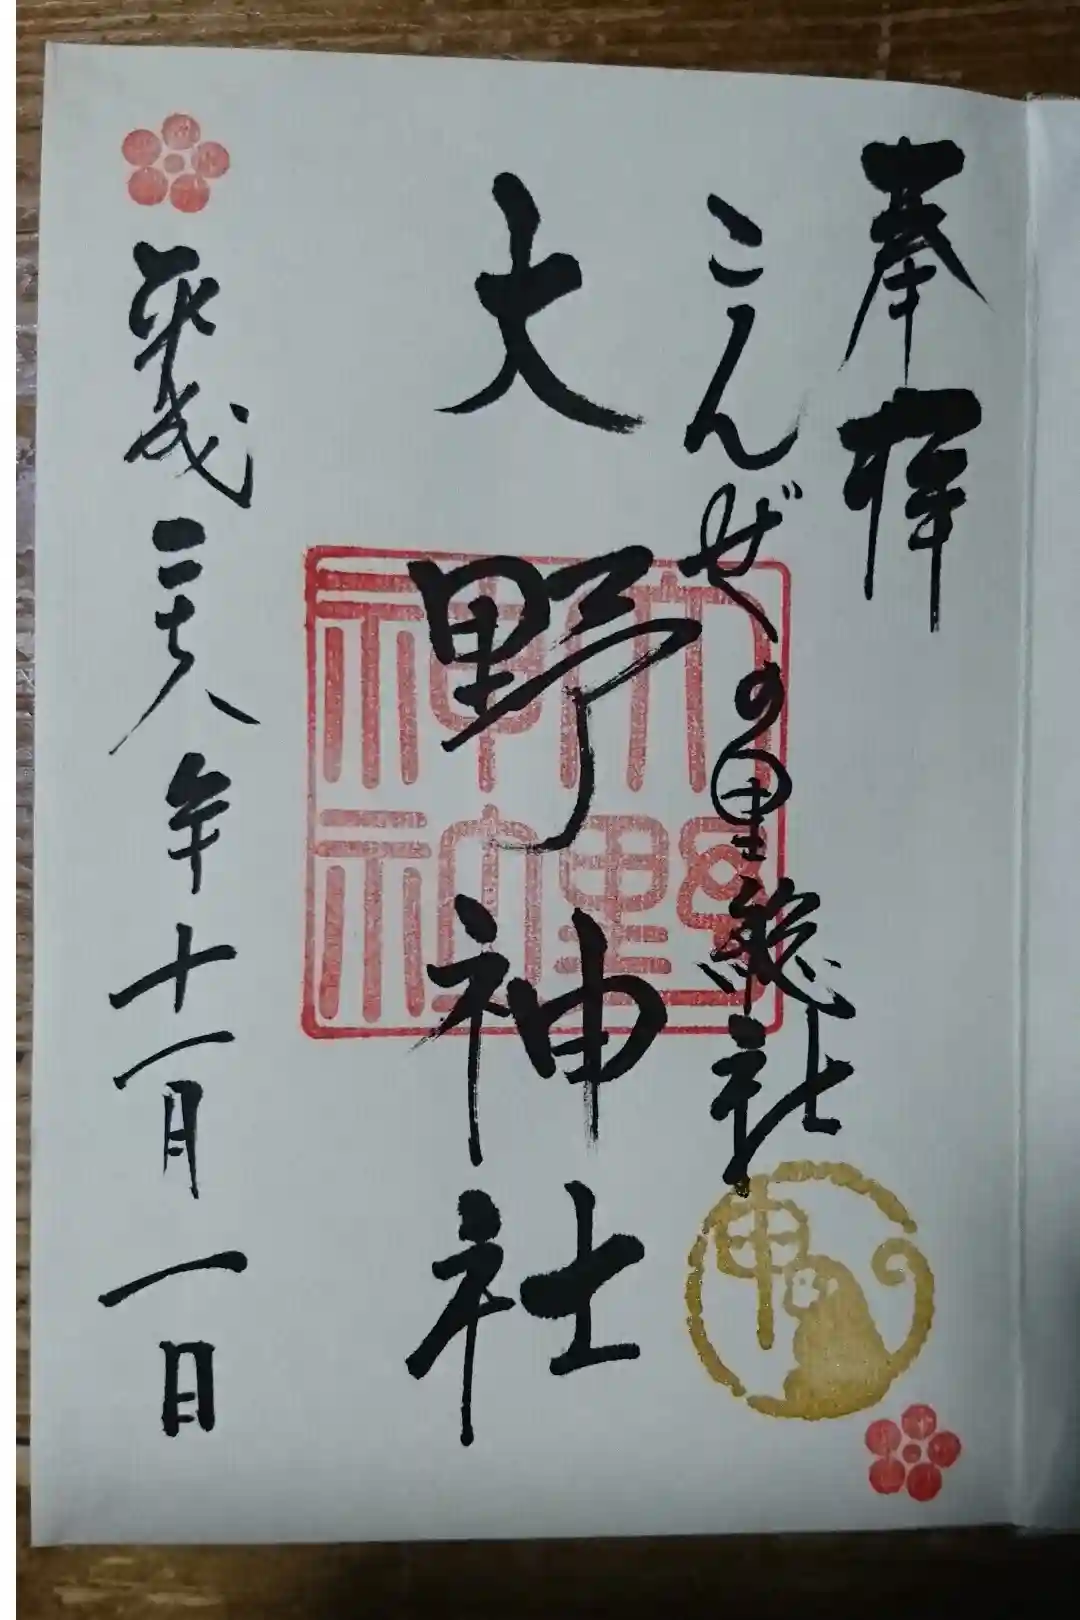 奉拝
こんぜの里総社
大野神社
大野神社
申
平成二十八年十一月一日